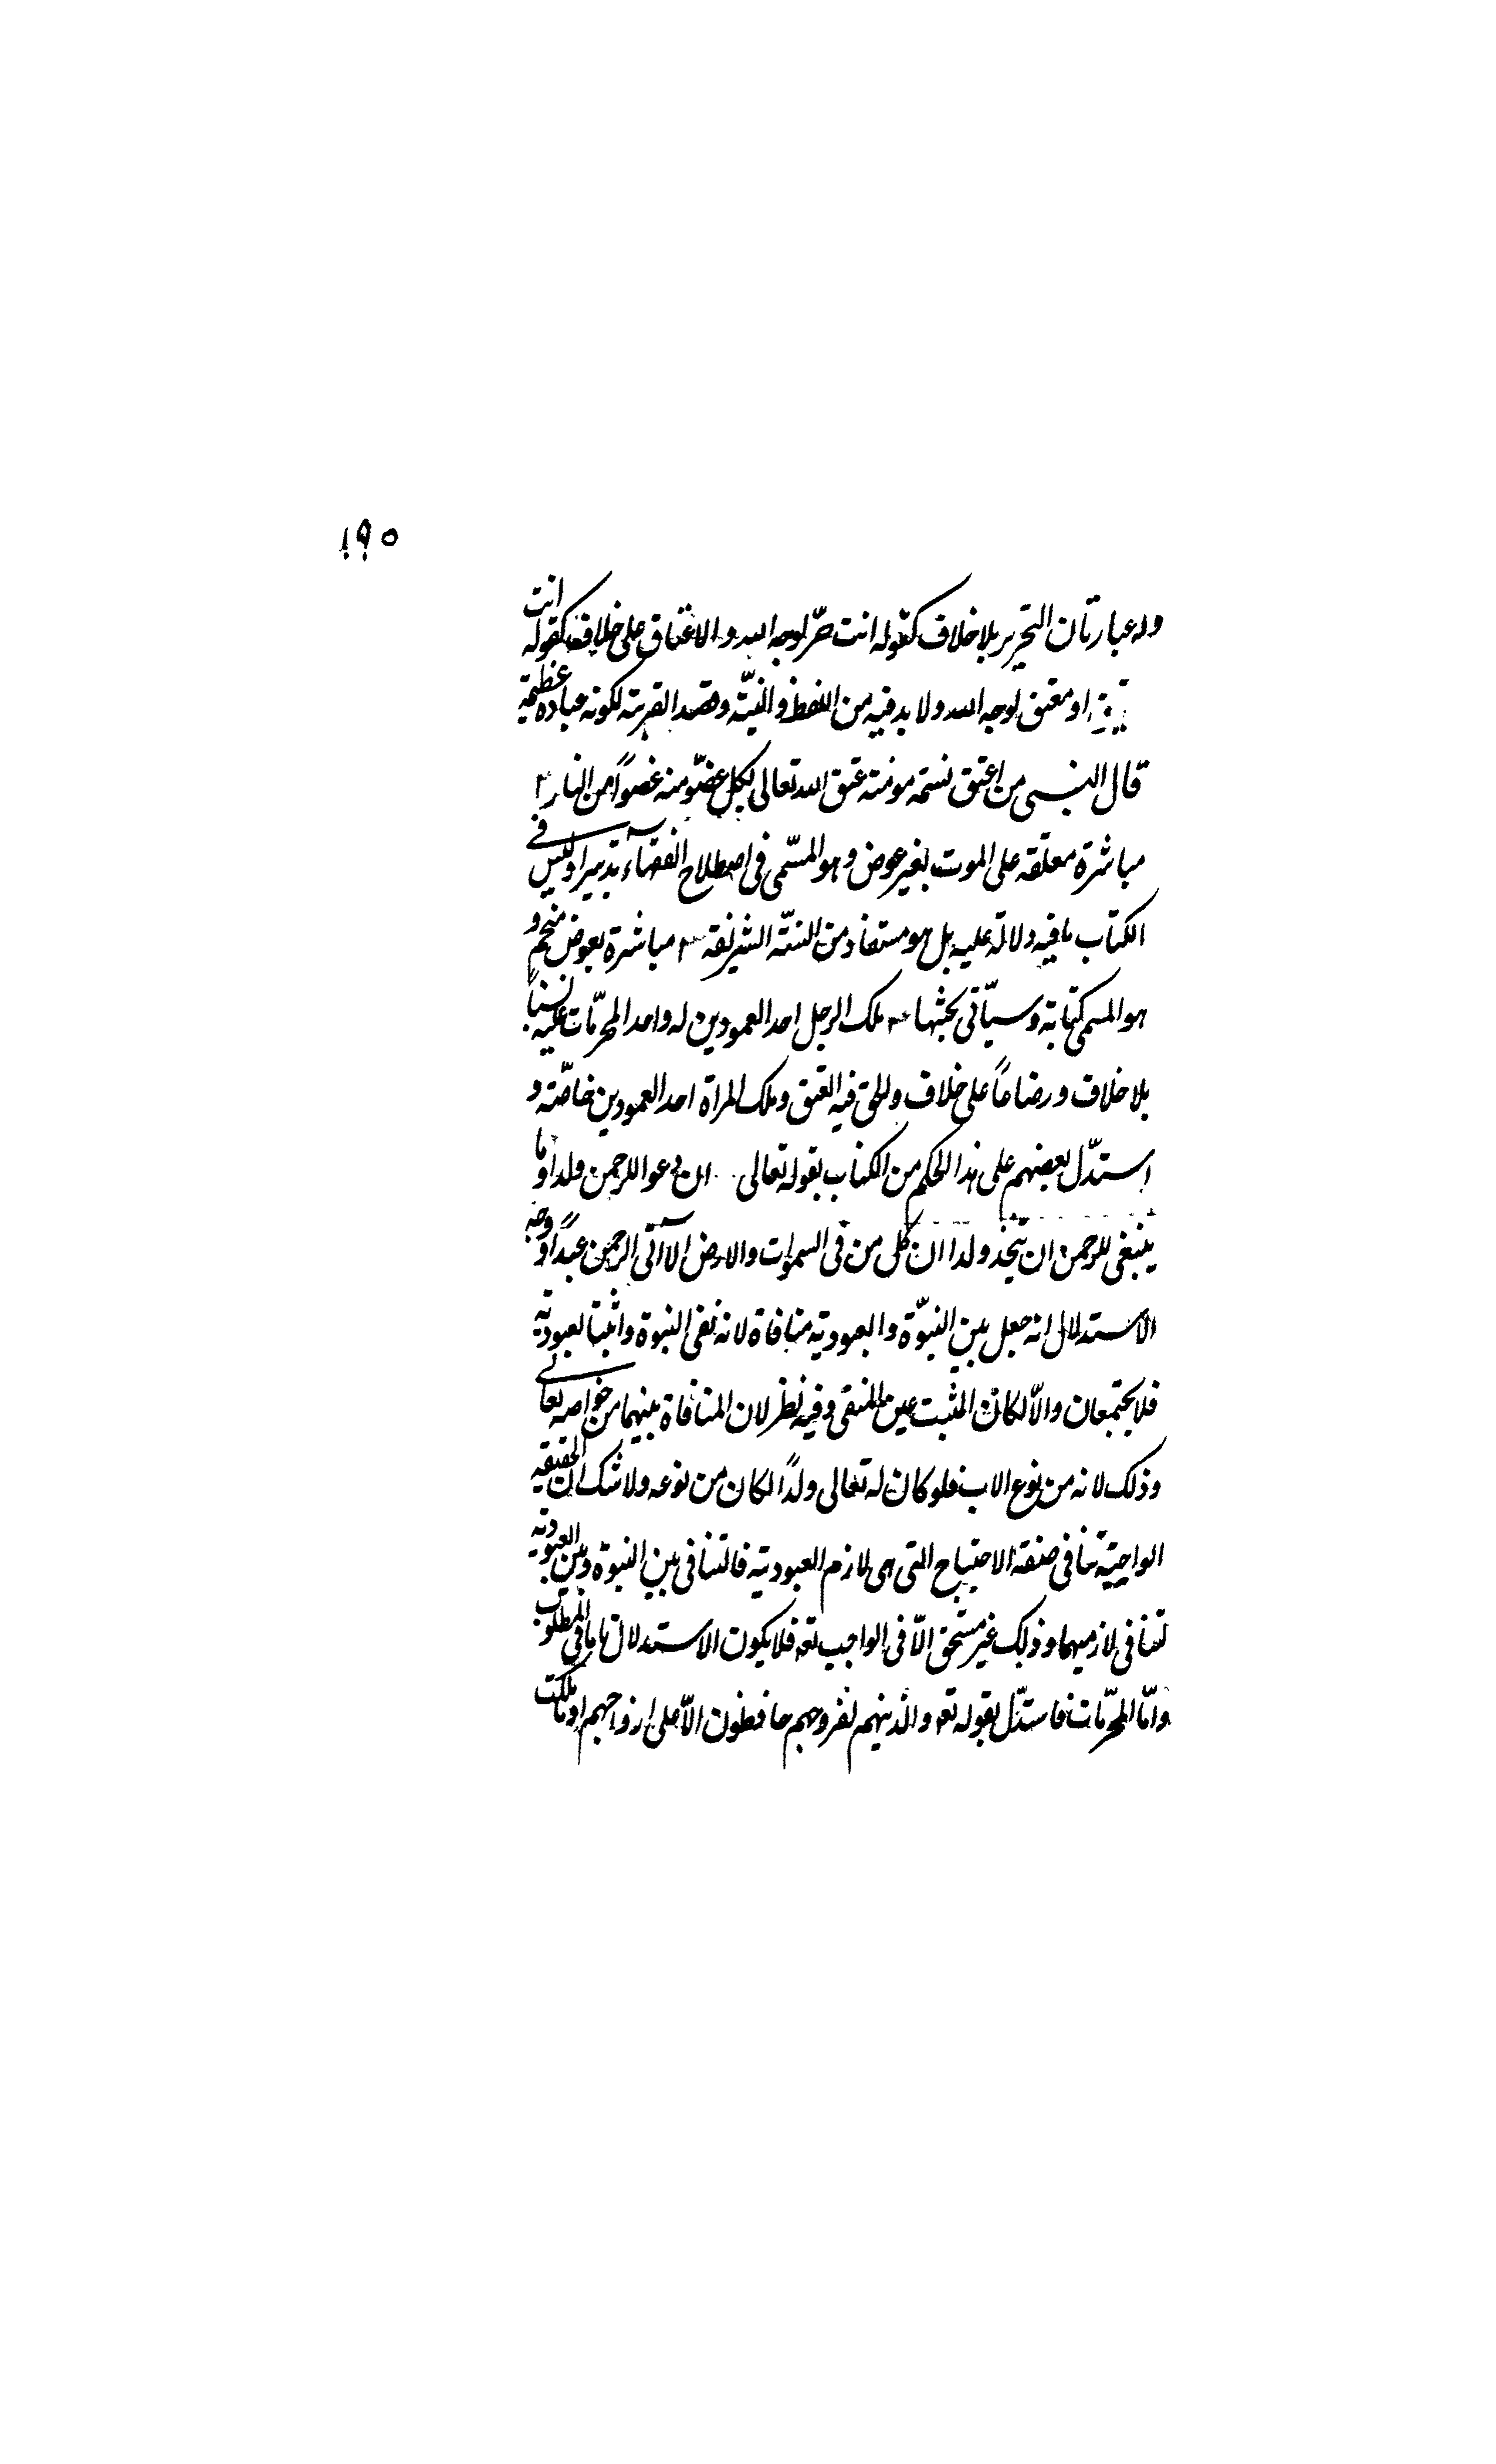 ١٩٥
وله عبارتان التحرير بلا خلاف كقوله انت حرّ لوجه الله والاعتاق على خلاف كقوله انت
او معتق لوجه الله ولا بد فيه من اللفظ والنيّة وقصد القربة لكونه عبادة عظيمة
قال النبي من اعتق نسمة مومنة عتق الله تعالى لكل عضو منه عضواً من النار ٢
مباشرة معلّقه على الموت بغير عوض وهو المسّمى فى اصطلاح الفقهاء تدبيرا وليس فى
الكتاب ما فيه دلالة عليه بل هو مستفاد من السنّة الشريفة ٣ مباشرة بعوض منجم و
هو المسمى كتابة وسيأتى بحثها ٤ ملك الرجل احد العمودين له واحد المحرّمات عليه نسباً
بلا خلاف ورضاعاً على خلاف والحق فيه العتق وملك المراة احد العمودين خاصّة و
استدّل بعضهم على هذا الحكم من الكتاب بقوله تعالى ان دعوا للرحمن ولدا وما
ينبغى للرحمن ان يتخذ ولدا ان كل من فى السموات والارض الا آتى الرحمن عبداً ووجه
الاستدلال انه جعل بين البنوّة والعبودية منافاة لانه نفى البنوة واثبت العبودية
فلا يجتمعان والّا لكان المثبت عين المنفى وفيه نظر لان المنافاة بينهما من خواصه تعالى
وذلك لانه من نوع الاب فلو كان له تعالى ولداً لكان من نوعه ولا شك ان الحقيقة
الواجبيّة تنافى صفة الاحتياج التى هى لازم العبودية فالتنافى بين البنوة وبين العبودية
لتنافى لازميهما وذلك غير مستحق الّا فى الواجب تعه فلا يكون الاستدلال تاما فى المطلوب
وامّا المحرّمات فاستدّل بقوله تعه والذينهم لفروجهم حافظون الّا على ازواجهم او ما ملكت